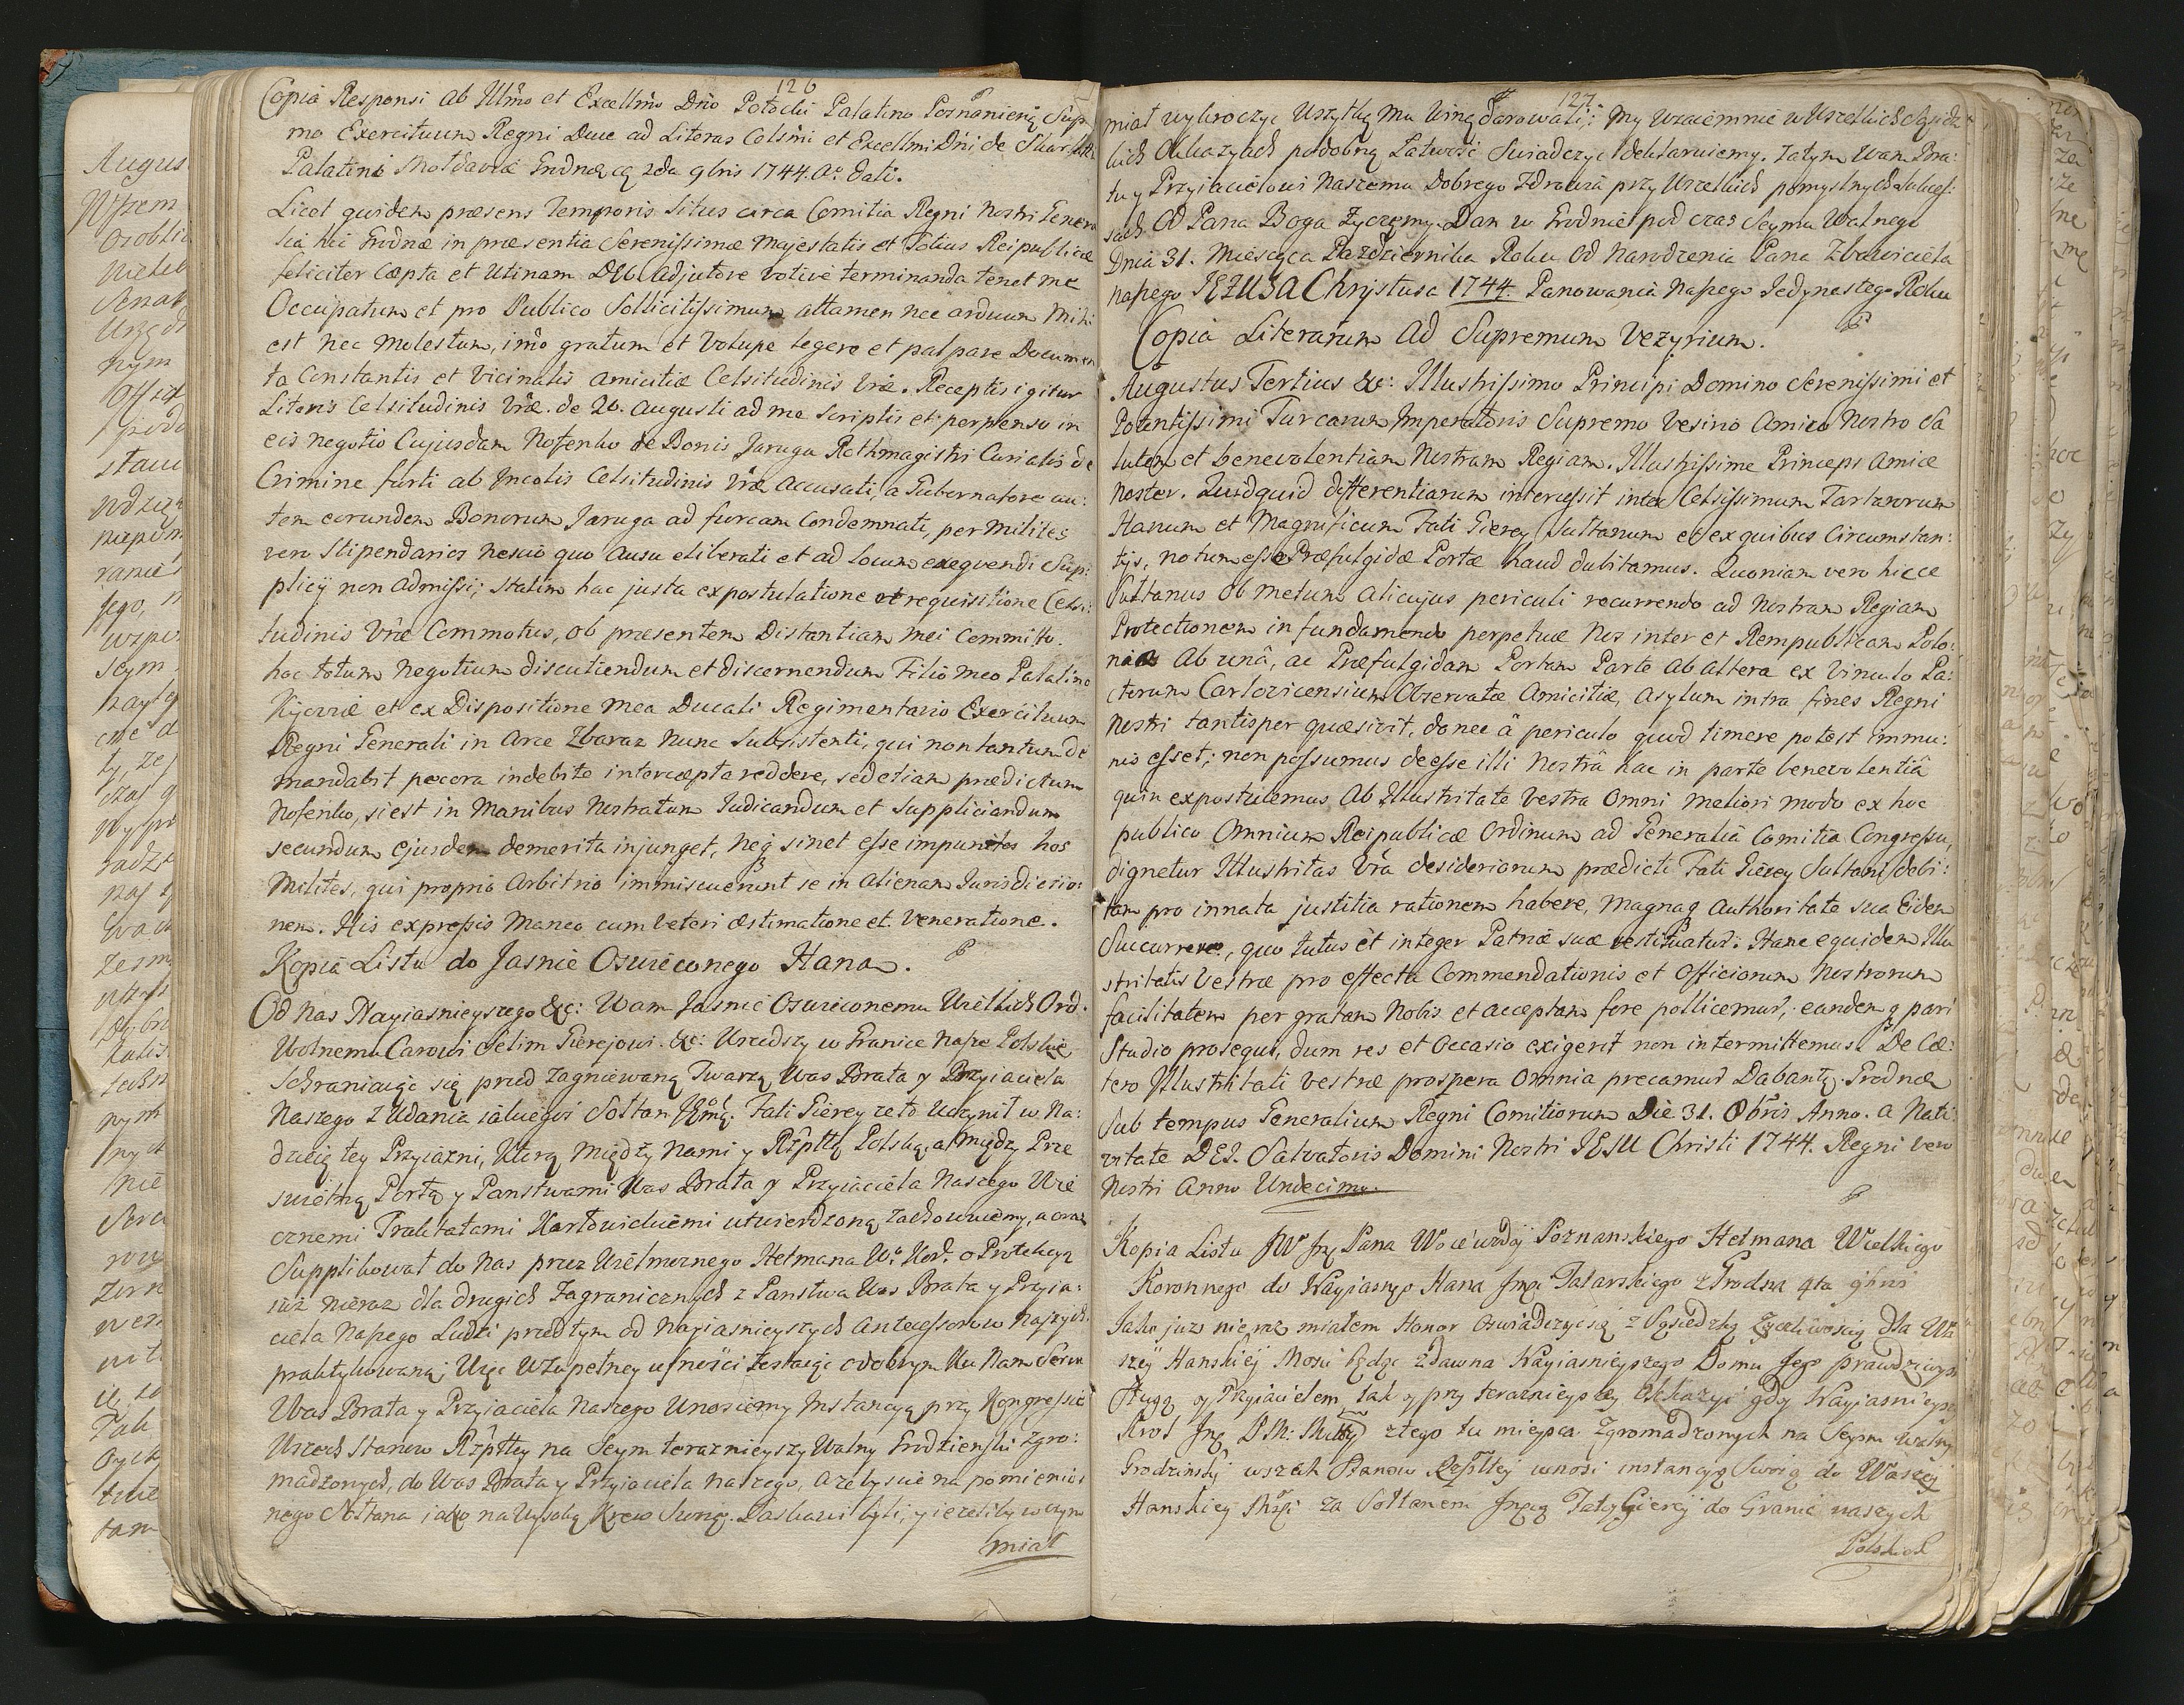 126
Copia Responsi ab Illmo et Excellmo Dno Potocki Palatino Posnanien Supr
mo Exercituum Regni Duce ad Literas Celsmi et Excellmi Dni de
Palatini Moldaviæ Grodna 2da 9bris 1744. Ao dati.
Licet quidem præsens Temporis Situs circa Comitia Regni Nostri Genera
lia hic Grodnæ in præsentia Serenissimæ Majestatis et Totius Reipublicæ
feliciter cæpta et Utinam DEO adjutore votive terminanda tenet me
Occupatum et pro Publico Sollicitissimum attamen nec arduum Mihi
est nec molestum, imo gratum et Volupe legere et palpare Documen
ta Constantis et Vicinalis amicitiæ Celsitudinis Vræ. Receptis igitur
Literis Celsitudinis Vræ. de 26. Augusti ad me Scriptis et perpenso in
eis negotio Cujusdam Nosenko de Bonis Jaruga Rothmagistri Curialis de
Crimine furti ab Incolis Celsitudinis Vræ Accusati, a Gubernatore au:
tem eorundem Bonorum Jaruga ad furcam Condemnati, per Milites
vero Stipendarios nescio quo ausu eliberati et ad locum exequendi Sup:
plicij non admissi; Statim hac justa expostulatione et requisitione Celsi:
tudinis Vræ Commotus, ob præsentem Distantiam mei Committo
hoc totum negotium discutiendum et discernendum Filio meo Palatino
Kijoviæ et ex Dispositione mea Ducali Regimentario Exercituum
Regni Generali in Arce Zbaraz Nunc Subsistenti, qui non tantum de
mandabit pecora indebite intercæpta reddere, sed etiam prædictum
Nosenko, si est in Manibus Nostratum Judicandum et Suppliciandum
secundum ejusdem demerita injunget, neq sinet esse impunitos hos
Milites, qui proprio Arbitrio immiscuerunt se in Alienam Jurisdictio:
nem. His expressis Maneo cum Veteri æstimatione et Veneratione.
Kopia Listu do Jasnie Oswieconego Hana.
Od Nas Nayiasnieyszego &c: Wam Jasnie Oswieconemu Wielkich Ord.
Wolnemu Carowi Selim Gierejowi. &c: Wszedszy w Granice Nasze Polskie
Schraniaiąc się przed Zagniewaną Twarzą Was Brata y Przyiaciela
Naszego z Udania iakiegoś Sołtan Jmć. Fati Gierey ze to Uczynił w Na:
dzieię tey Przyiazni, Którą między Nami y Rzpttą Polską, a między Prze
swietną Portą y Panstwami Was Brata y Przyiaciela Naszego Wie
cznemi Traktatami Karłowickiemi utwierdzoną Zachowuiemy, a oraz
Supplikował do Nas przez Wielmoznego Hetmana Wo Kor. o Protekcyą
iuż nieraz dla drugich Zagranicznych z Panstwa Was Brata y Przyia:
ciela Naszego Ludzi przedtym od Nayiasnieyszych Antecessorow Naszych
praktykowaną; Więc w zupełney ufności zostaiąc o dobrym Ku Nam Sercu
Was Brata y Przyiaciela Naszego Unosiemy Instancyą przy Kongressie
Wszech Stanow Rzptttey na Seym terazniejszy Walny Grodzienski Zgro:
madzonych, do Was Brata y Przyiaciela Naszego, azebyscie na pomienio:
nego Sołtana iako na Wysoką Krew Swoię. Łaskawi byli, y iezeliby w czym
miał
127
miał wykroczyc Wszytkę Mu Winę darowali; My Wzaiemnie w Wszelkich Sąsiedz
kich Okkazyach podobną Łatwość Swiadczyć deklaruiemy. Zatym Wam Bra:
tu y Przyiacielowi Naszemu Dobrego Zdrowia przy Wszelkich pomyslnych sukces:
sach Od Pana Boga Zyczemy. Dan w Grodnie pod czas Seymu Walnego
Dnia 31. Miesiąca Pazdziernika Roku Od Narodzenia Pana Zbawiciela
naszego JEZUSA Chrystusa 1744. Panowania Naszego Jedynastego Roku
Copia Literarum Ad Supremum Vezyrium.
Augustus Tertius &c: Illustrissimo Principi Domino Serenissimi et
Potentissimi Turcarum Imperatoris Supremo Vesirio Amico Nostro Sa
lutem et benevolentiam Nostram Regiam. Illustrissime Princeps Amice
Noster. Quidquid differentiarum intercessit inter Celsissimum Tartarorum
Hanum et Magnificum Fati Gierey Sultanum et ex quibus Circumstan:
tijs, notum esse Præfulgidæ Portæ haud dubitamus. Quoniam vero hicce
Sultanus Ob metum Alicujus periculi recurrendo ad Nostram Regiam
Protectionem in fundamento perpetuæ Nos inter et Rempublicam Polo:
niæ Ab una, ac Præfulgidam Portam Parte ab altera ex Vinculo Pa:
ctorum Carlovicensium Observatæ Amicitiæ, Asylum intra fines Regni
Nostri tantisper quæsivit, donec â periculo quod timere potest immu:
nis esset; non possumus deesse illi Nostrâ hac in parte benevolentiâ
quin expostulemus Ab Illustritate Vestra Omni meliori modo ex hoc
publico Omnium Reipublicæ Ordinum ad Generalia Comitia Congressu,
dignetur Illustritas Vra desideriorum prædicti Fati Gierey Sultani debi:
tam pro innata justitia rationem habere, Magnaq Authoritate sua Eidem
Succurrere, quo tutus et integer Patriæ suæ restituatur: Hanc equidem Illu
stritatis Vestræ pro effecta Commendationis et Officiorum Nostrorum
facilitatem per gratam Nobis et acceptam fore pollicemur; eandemq pari
Studio prosequi, dum res et Occasio exigerit non intermittemus. De Cæ:
tero Illustritati Vestræ prospera Omnia precamur Dabantq. Grodnæ
Sub tempus Generalium Regni Comitiorum Die 31. Obris Anno. a Nati
vitate DEI. Salvatoris Domini Nostri JESU Christi 1744. Regni vero
Nostri Anno Undecimo.
Kopia Listu JW Jmć Pana Woiewody Poznanskiego Hetmana Wielkiego
Koronnego do Nayiasnego Hana Jmci Tatarskiego z Grodna 4ta 9bris
Jako juz nie raz miałem Honor oswiadczyć się z Sąsiedzką Życzliwością dla Wa
szey Hanskiey Mosci będąc zdawna Nayiasnieyszego Domu Jego prawdziwym
Sługą y Przyiacielem, tak y przy terazniejszey Okkazyi gdy Nayiasnieyszy
Krol Jmć P.M: Miłty ztego tu mieysca Zgromadzonych na Seym walny
Grodzinski wszech Stanow Rzpttey wnosi instancyą Swoią do Waszey
Hanskiey Mści za Sołtanem Jmcią Faty Gierey do Granic naszych
Polskich